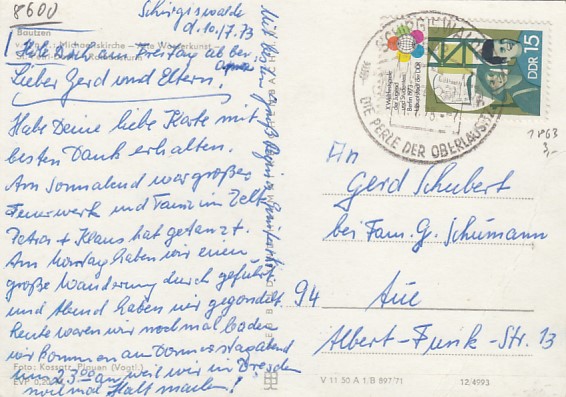 8600
Schirgiswalde
d. 10.7.73
Bautzen
Michaeliskirche - Alte Wasserkunst
Hole Dich am Freitag ab
Lieber Gerd und Eltern!
Habe Deine liebe Karte mit
besten Dank erhalten.
Am Sonnabend war großes
Feuerwerk und Tanz im Zelt
Petra + Klaus hat getanzt.
Am Montag haben wir einen
große Wanderung durchgeführt
und Abend haben wir gegondelt
Heute waren wir nochmal baden
wir kommen am Donnerstagabend
um 23.00 an, weil wir in Dresden
nochmal Halt machen!
Foto: Kossatz, Plauen (Vogtl.)
EVP 0,20
V 11 50 A 1/B 897/71
12/4993
SCHIRGISWALDE
DIE PERLE DER OBERLAUSITZ
X. Weltfestspiele
der Jugend
und Studenten
Berlin 1973
Hauptstadt der DDR
DDR 15
1863
3,-
An
Gerd Schubert
bei Fam. G. Schumann
94 Aue
Albert-Funk-Str. 13